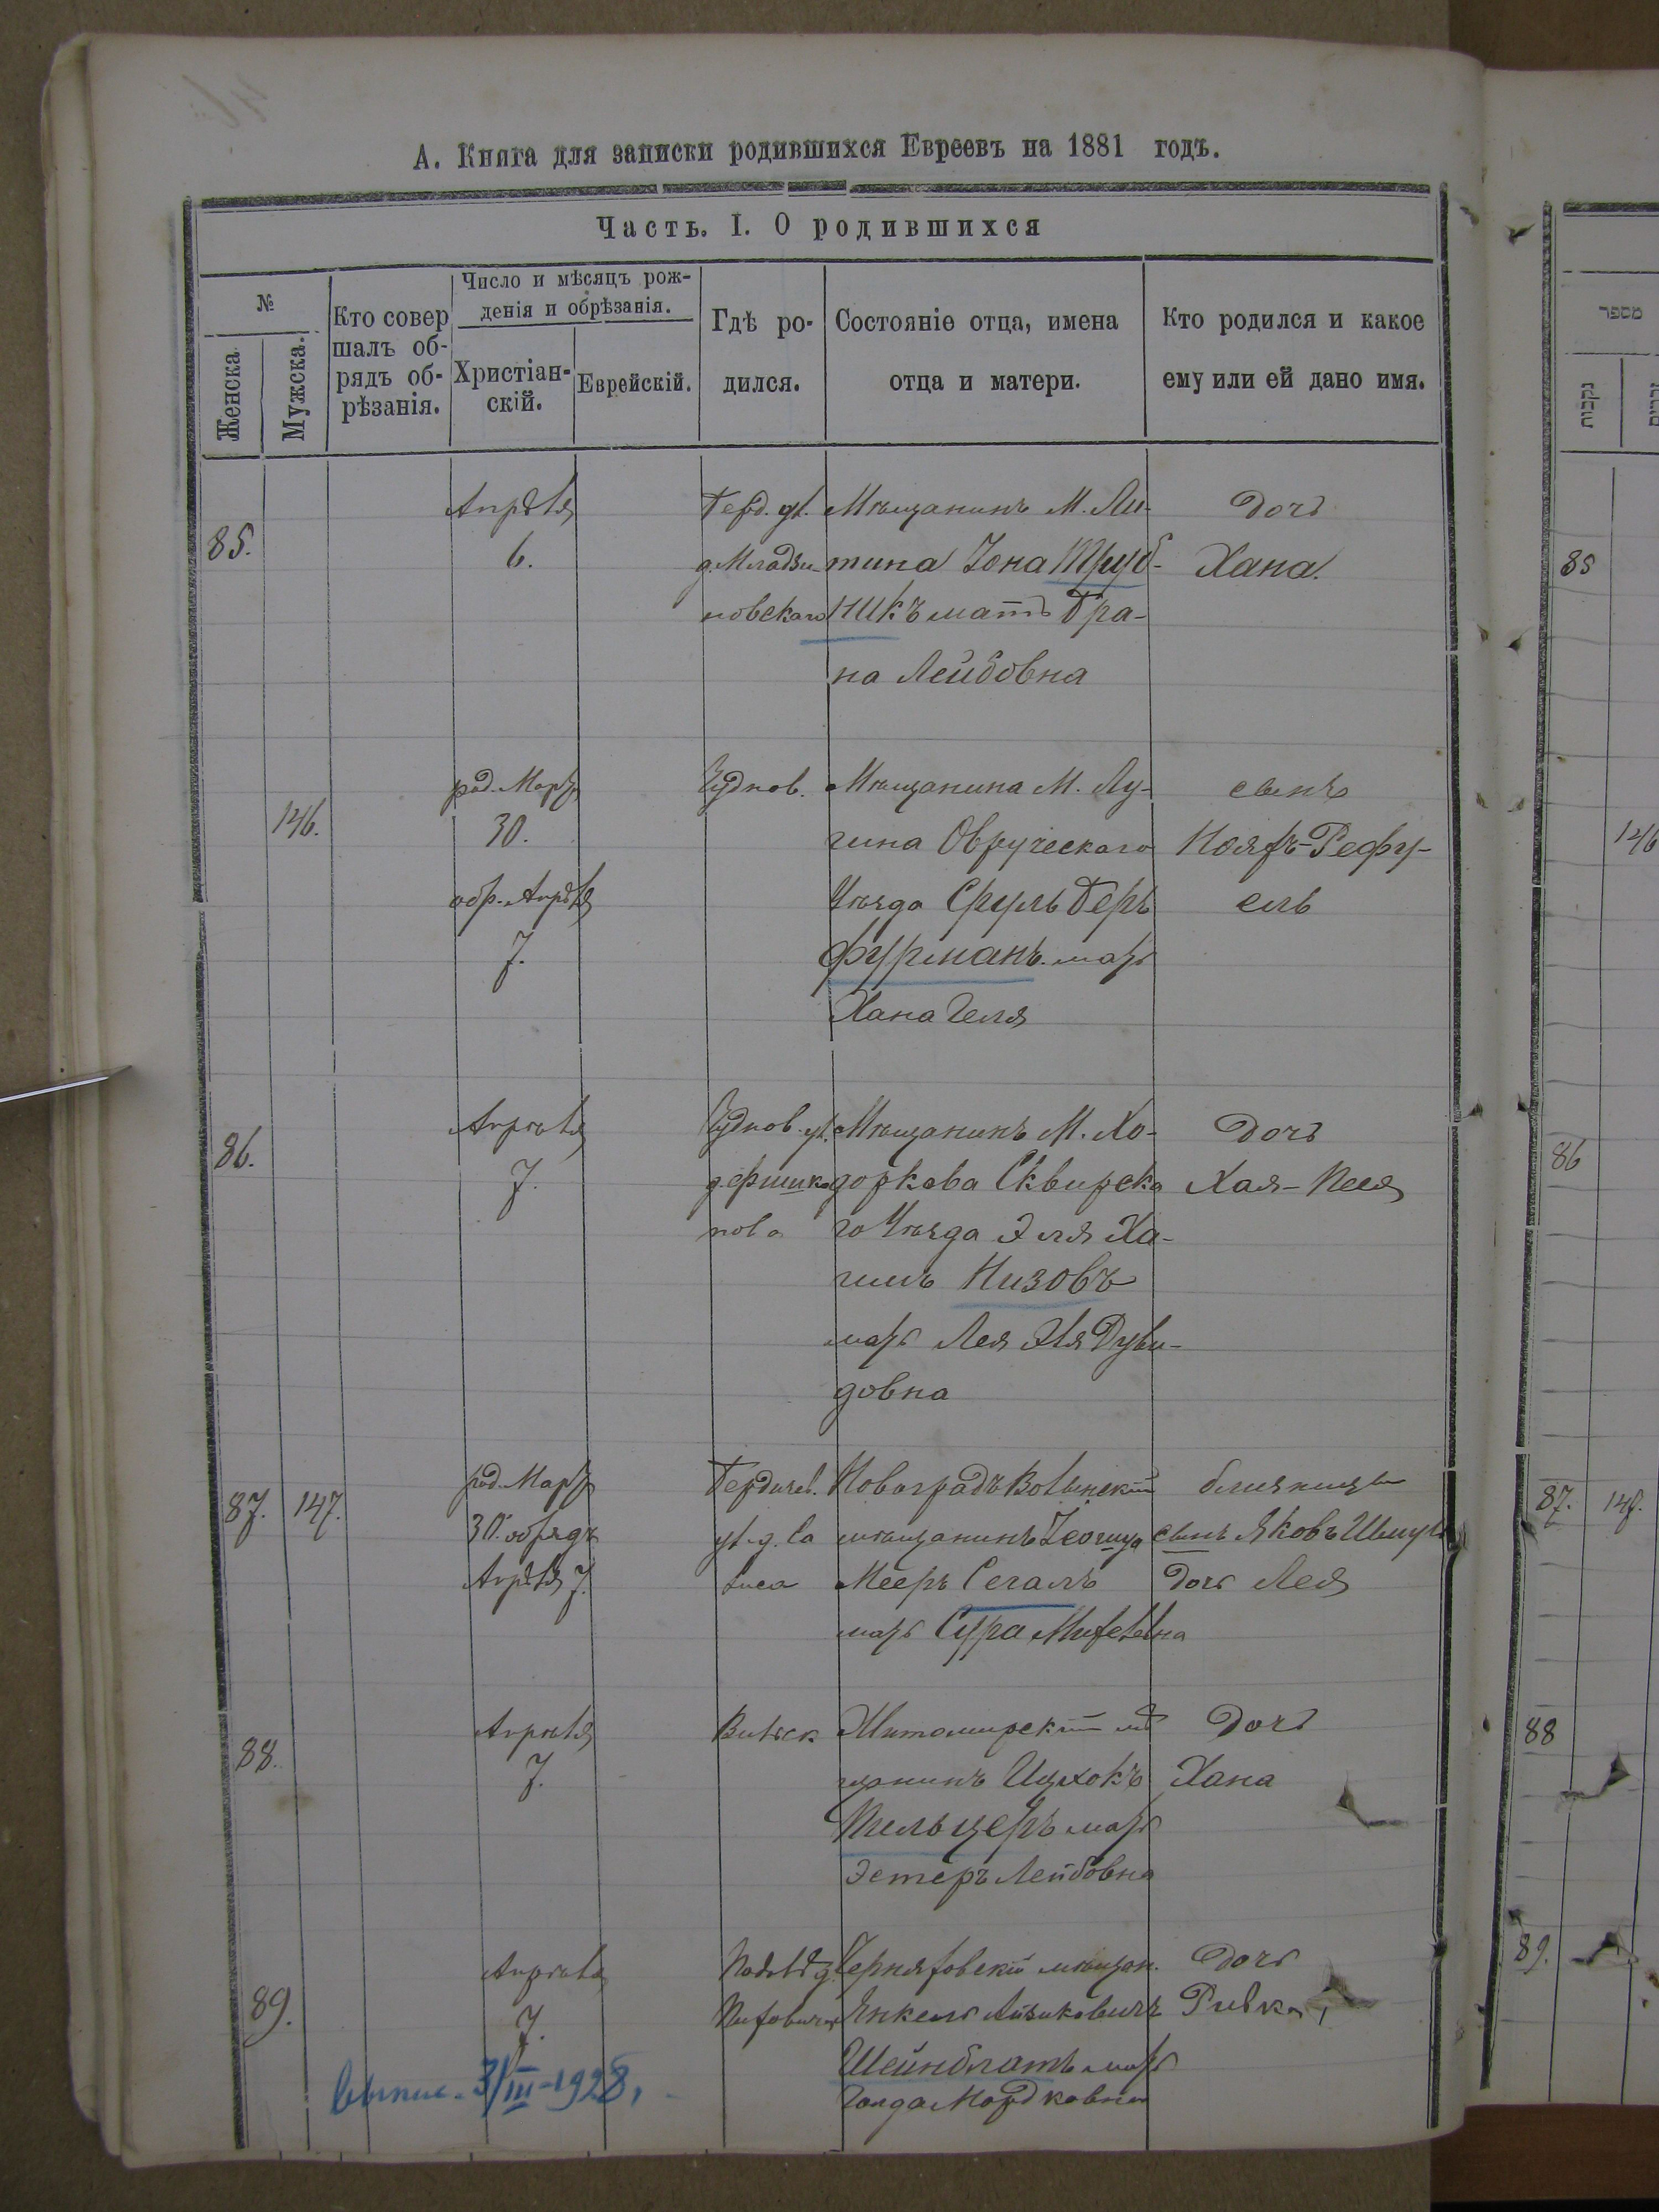 А. Книга для записки родившихся Евреевъ на 1881 годъ.
Часть. I. О родившихся
№
Женска
Мужска.
Кто совер
шалъ об-
рядъ об-
рѣзанія.
Число и мѣсяцъ рож-
денія и обрѣзанія.
Христіан-
скій.
Еврейскій.
Гдѣ ро-
дился.
Состояніе отца, имена
отца и матери.
Кто родился и какое
ему или ей дано имя.
85.
Апрѣля
6.
Берд. ул.
новскаго
Мѣщанинъ М. Ли-
тина Іона Труб-
никъ мать Бра-
на Лейбовна
Дочь
Хана.
146.
род. Март
30.
обр. Апрѣля
7.
Чуднов.
Мѣщанина М. Лу-
гина Овручскаго
Уѣзда Сруль Беръ
Фурманъ мать
Хана Геля
сынъ
Рефу-
елъ
86.
Апрѣля
7.
Чуднов. ул.
нова
Мѣщанинъ М. Хо-
доркова Сквирска
го Уѣзда Эля Ха-
имъ Низовъ
мать Лея Дуви-
довна
Дочь
Хая-Песя
87.
147.
род. Март
30. обрядъ
Апрѣля 7.
Бердичев.
ул. д.
Новоградъ Волынскій
мѣщанинъ
Мееръ Сегалъ
мать Сура
близницы
сынъ Яковъ Шмуль
дочь Лея
88.
Апрѣля
7.
Вильск
Житомирскій мѣ
щанинъ Ицхокъ
мать
Эстеръ Лейбовна
Дочь
Хана
89.
Апрѣля
7.
Черняховскій мѣщан.
Янкель Айзиковичъ
Шейнблатъ мать
Голда Мордковна
Дочь
Ривка
выпис. 3/III-1928.
מספר
נקבות
זכרים
85
146
86
87.
147.
88
89.